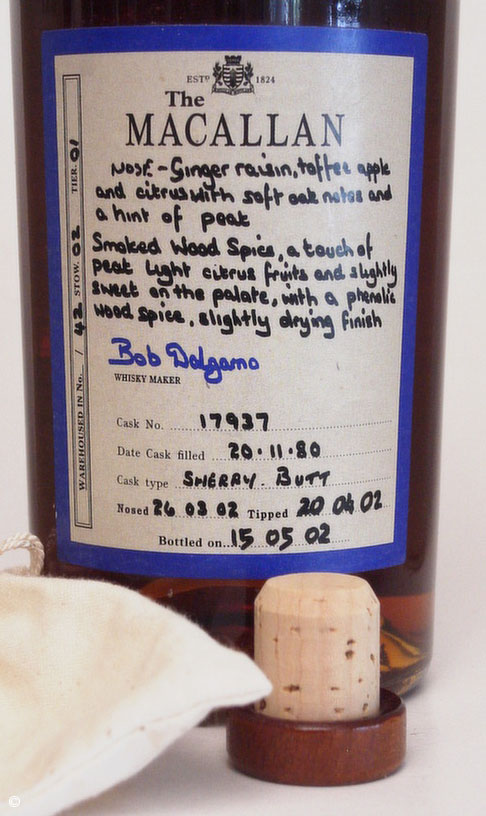 ESTD 1824
The
MACALLAN
NOSE - Ginger raisin, toffee apple
and citrus with soft oak notes and
a hint of peat
Smoked Wood Spice, a touch of
peat light citrus fruits and slightly
sweet on the palate, with a phenolic
wood spice, slightly drying finish
Bob Dalgarno
WHISKY MAKER
Cask No. 17937
Date Cask filled 20.11.80
Cask type SHERRY. BUTT
Nosed 26 03 02 Tipped 20 04 02
Bottled on 15 05 02
WAREHOUSED IN No. / 42 STOW. 02 TIER. 01
©